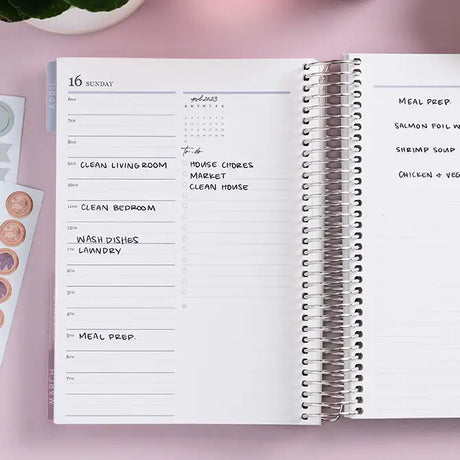 APRIL
16 SUNDAY
6AM
7AM
8AM
9AM CLEAN LIVING ROOM
10AM
11AM CLEAN BEDROOM
12PM
WASH DISHES
1PM LAUNDRY
2PM
3PM
4PM
5PM MEAL PREP.
6PM
7PM
april 2023
S M T W T F S
to-do
HOUSE CHORES
MARKET
CLEAN HOUSE
MARCH
MEAL PREP
SALMON FOIL W
SHRIMP SOUP
CHICKEN & VEG